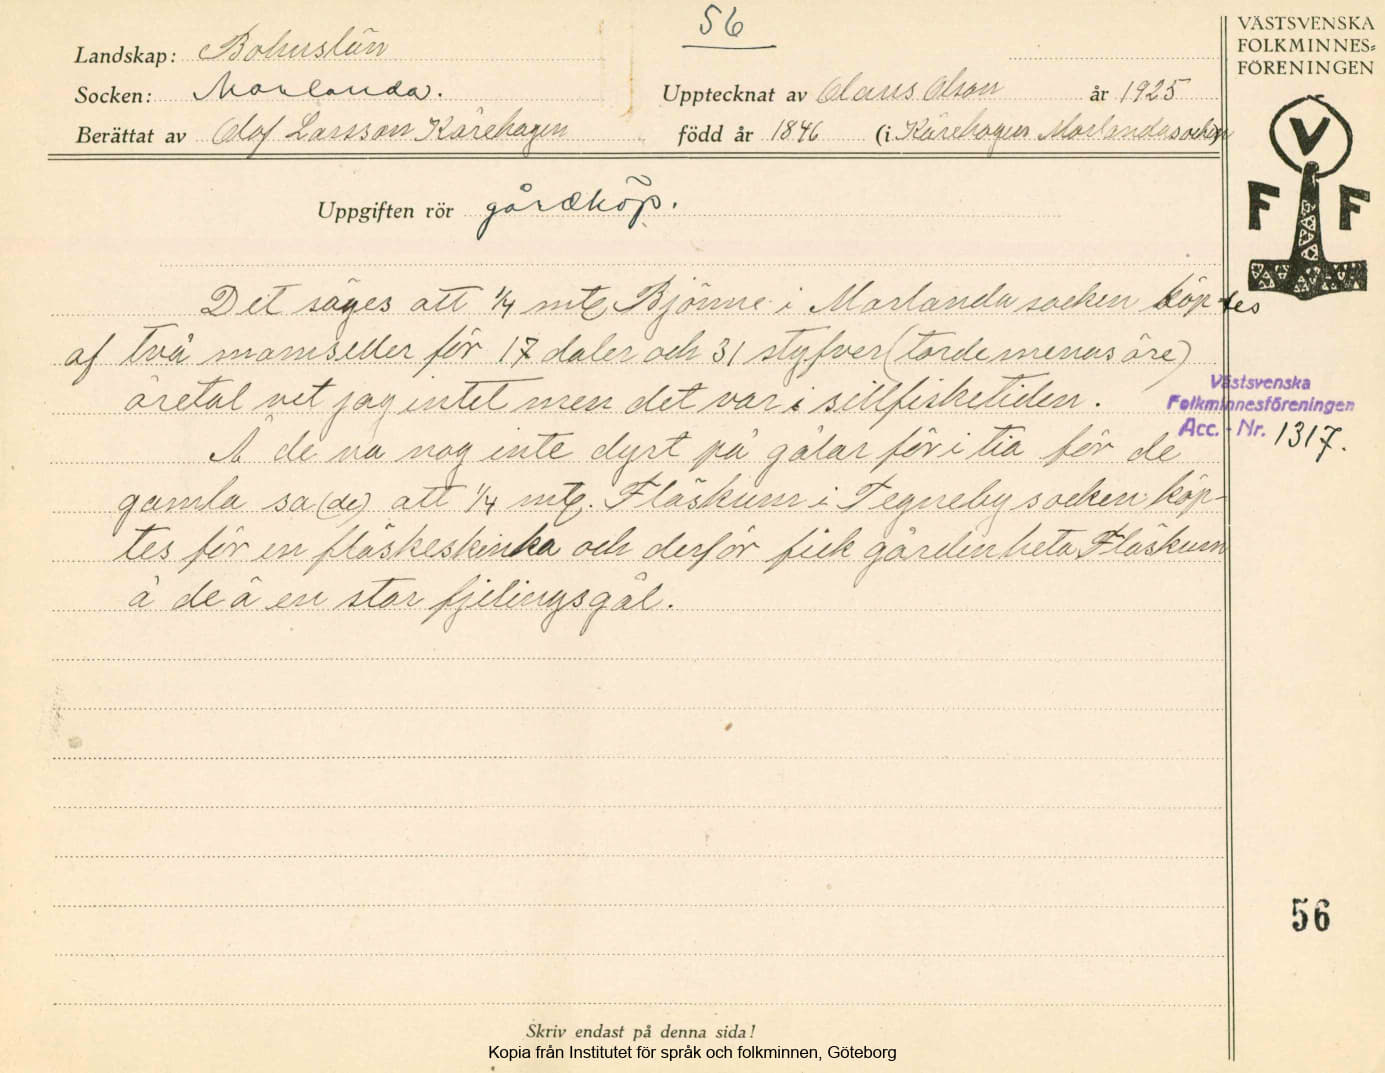 56
VÄSTSVENSKA
FOLKMINNES=
FÖRENINGEN
Landskap: Bohuslän
Socken: Morlanda.
Upptecknat av Claus Olson år 1925
Berättat av Olof Larsson Kärehagen född år 1846 (i Kärehogen Morlanda socken)
V
F F
Uppgiften rör gårdköp.
Det säges att 1/4 mtl Björnne i Morlanda socken köp-tes
af två mamseller för 17 daler och 31 styfver (torde menas öre)
åretal vet jag intet men det var i sillfisketiden.
Västsvenska
Folkminnesföreningen
Acc. - Nr. 1317.
Å de va nog inte dyrt på gålar för i tia för de
gamla sa (de) att 1/4 mtl. Fläskum i Tegneby socken köp-
tes för en fläskeskinka och derför fick gården heta Fläskum
å de å en stor fjelingsgål.
56
Skriv endast på denna sida!
Kopia från Institutet för språk och folkminnen, Göteborg